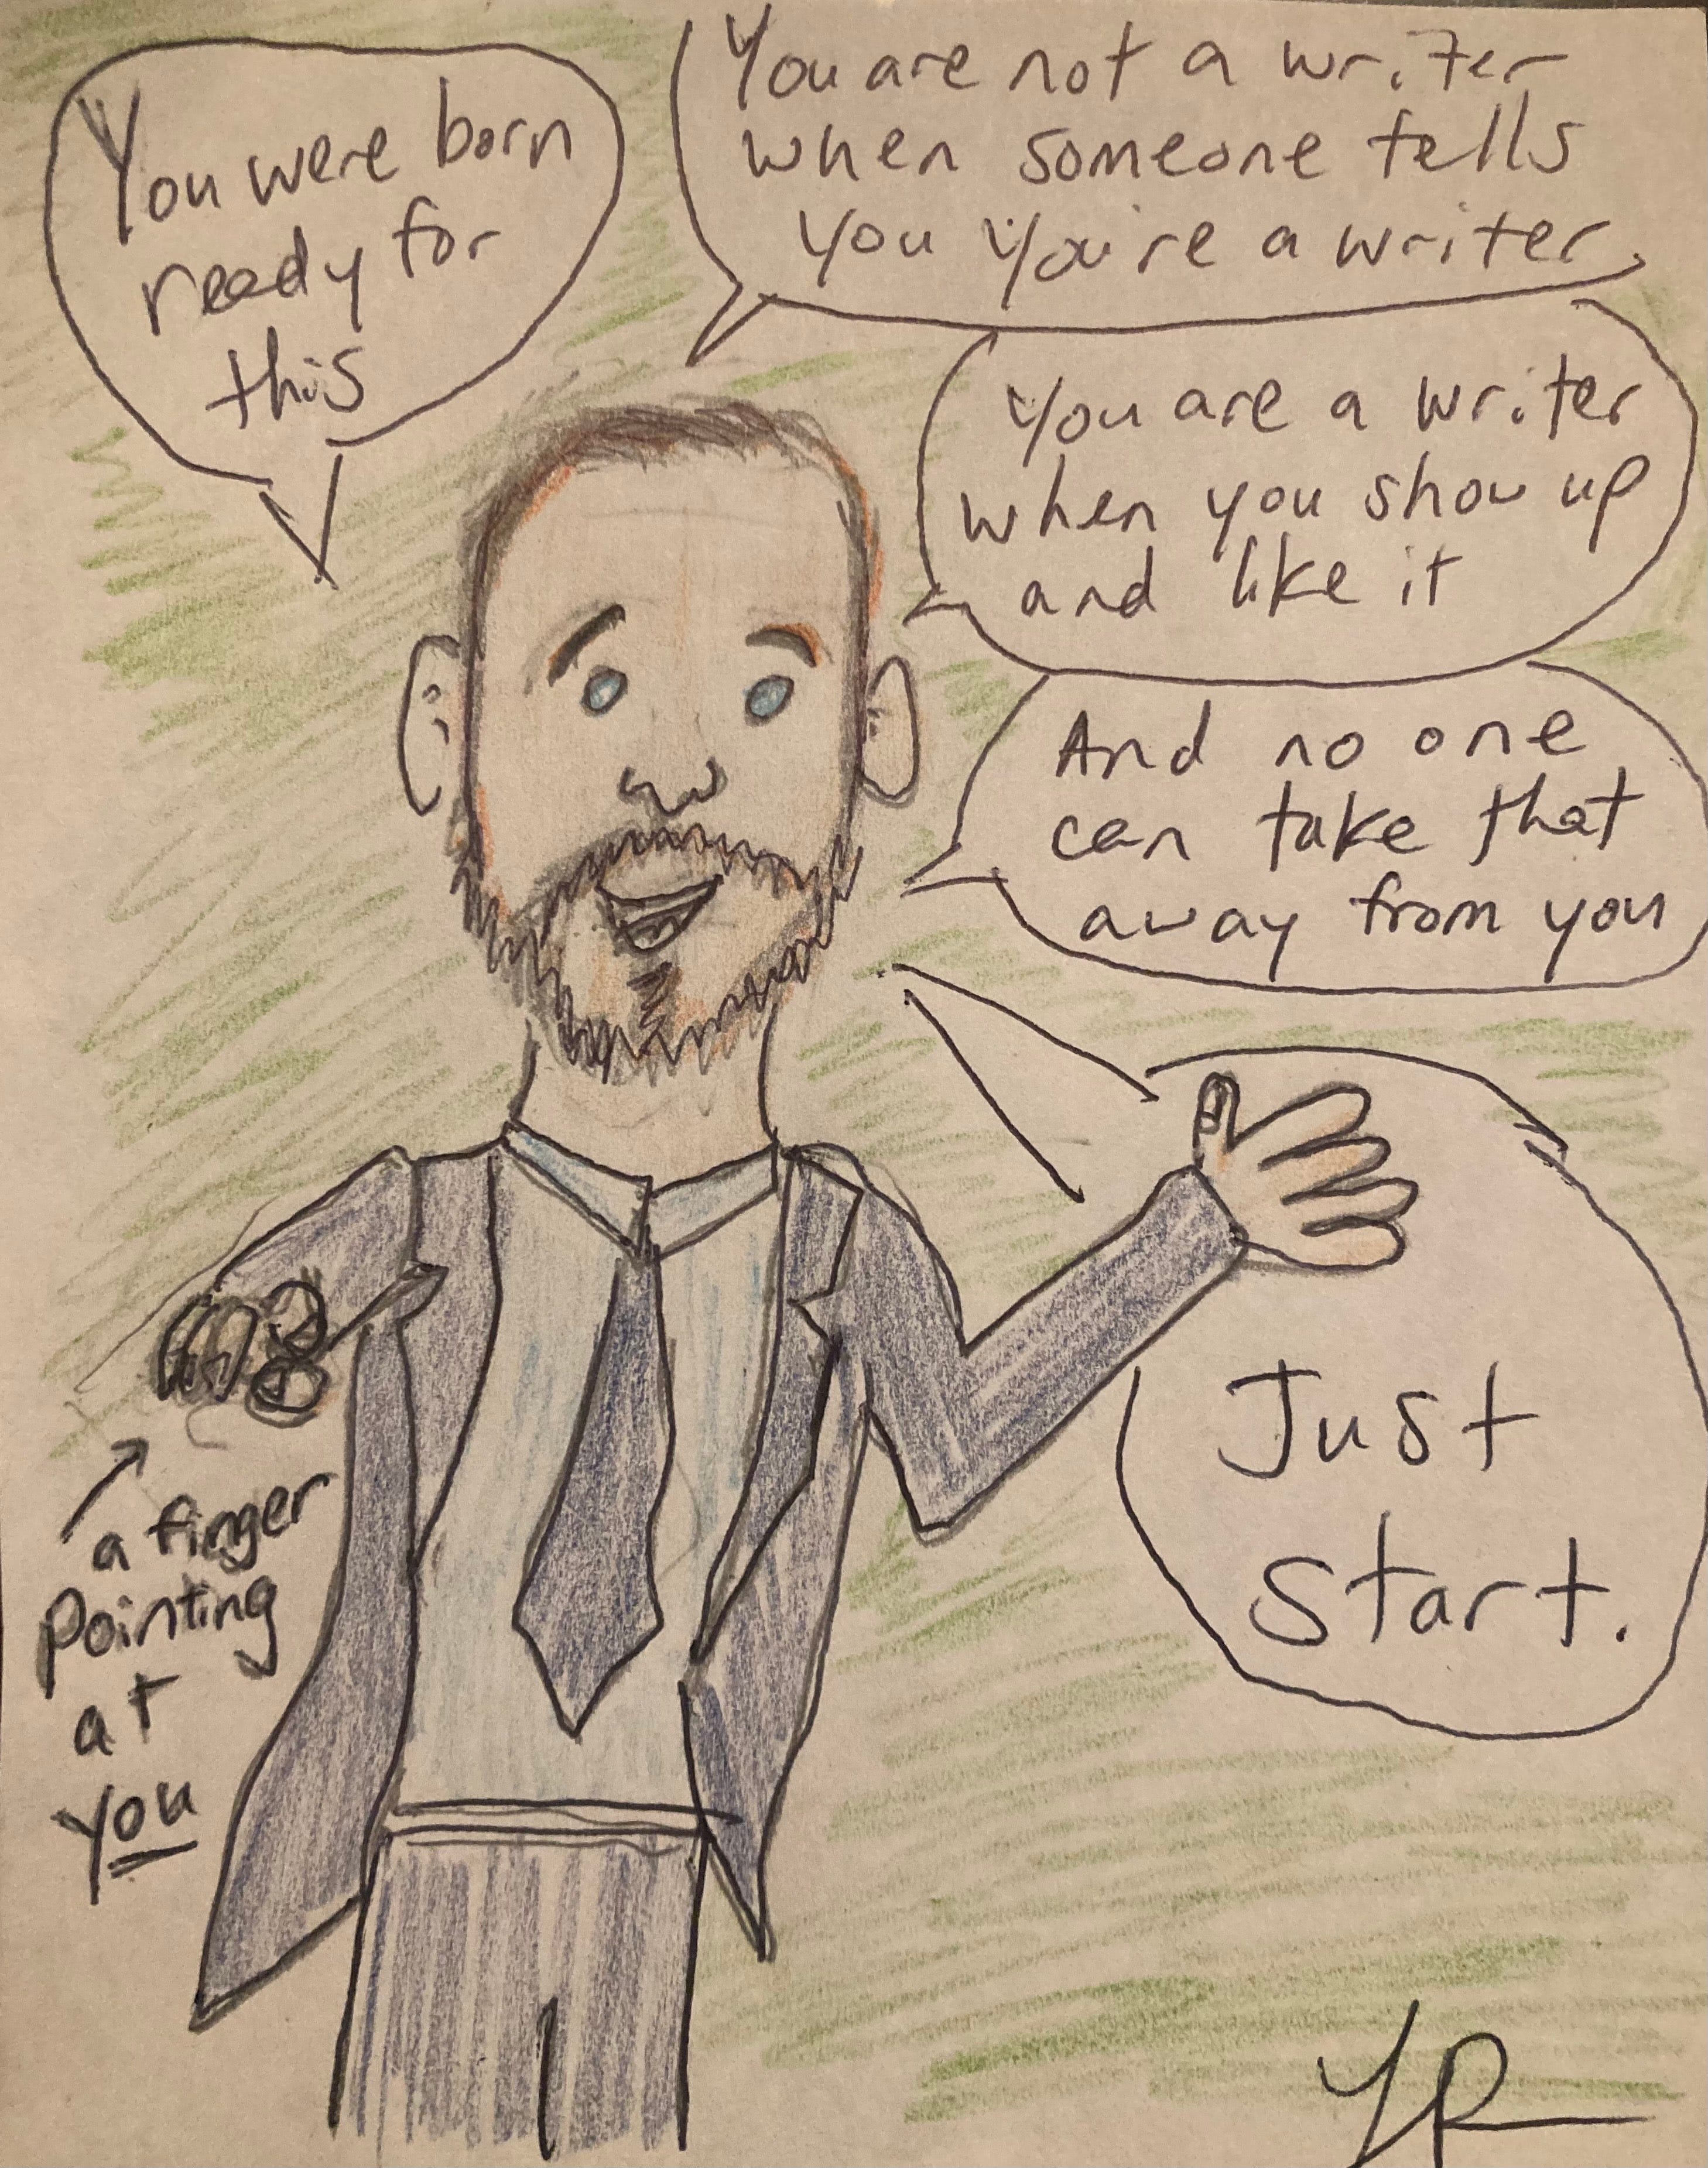 You were born
ready for
this
You are not a writer
when someone tells
you you're a writer
You are a writer
when you show up
and like it
And no one
can take that
away from you
Just
Start.
a finger
pointing
at
you